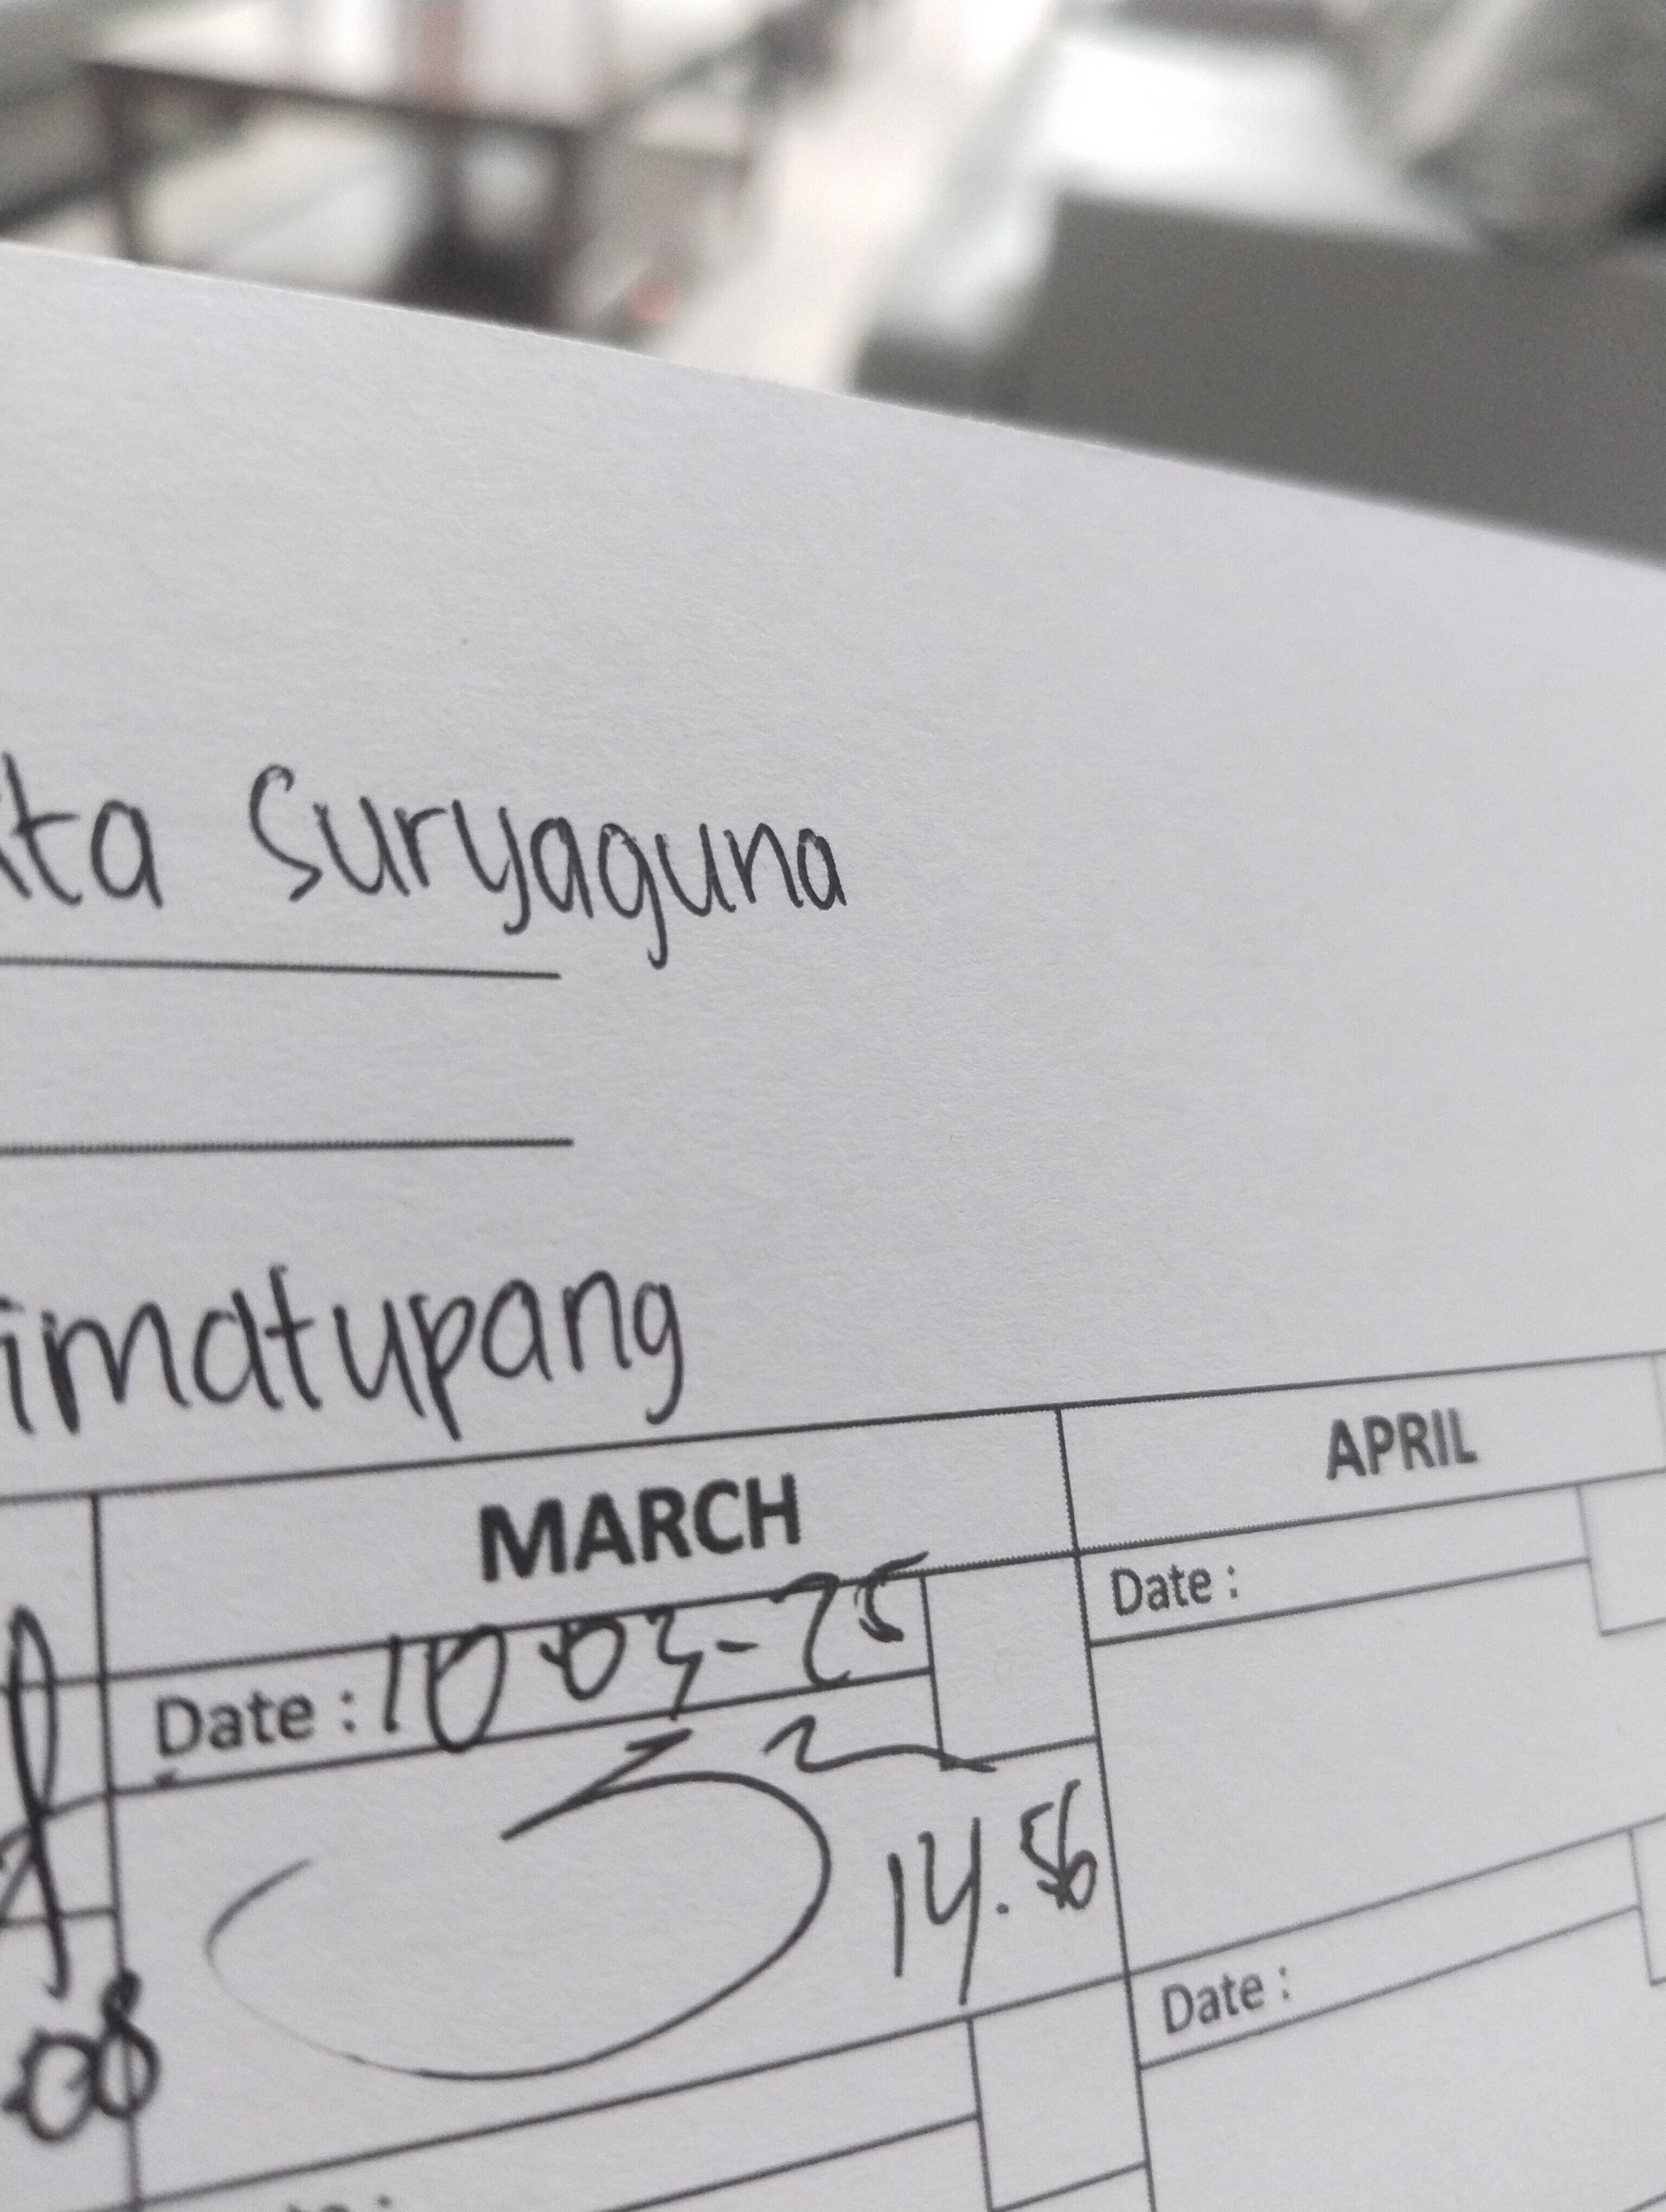 ta Suryaguna
imatupang
MARCH
APRIL
Date : 10-03-25
Date :
14.56
Date :
.08